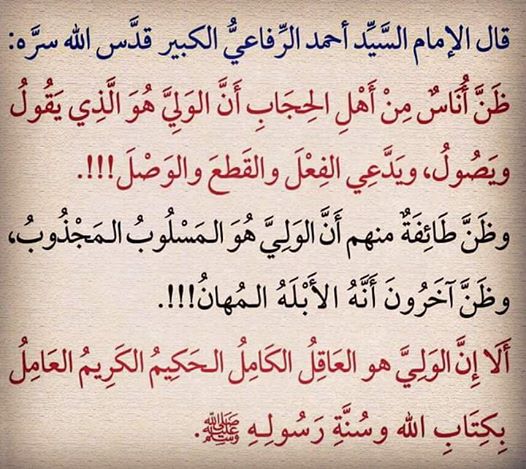 قال الإمام السَّيِّد أحمد الرِّفاعيُّ الكبير قدَّس الله سرَّه:
ظَنَّ أُنَاسٌ مِنْ أَهْلِ الحِجَابِ أَنَّ الوَلِيَّ هُوَ الَّذِي يَقُولُ
ويَصُولُ، ويَدَّعِي الفِعْلَ والقَطعَ والوَصْلَ!!!.
وظَنَّ طَائِفَةٌ منهم أَنَّ الوَلِيَّ هُوَ المَسْلُوبُ المَجْذُوبُ،
وظَنَّ آخَرُونَ أَنَّهُ الأَبْلَهُ المُهانُ!!!.
أَلَا إِنَّ الوَلِيَّ هو العَاقِلُ الكَامِلُ الحَكِيمُ الكَرِيمُ العَامِلُ
بِكِتَابِ الله وسُنَّةِ رَسُولِهِ ﷺ.